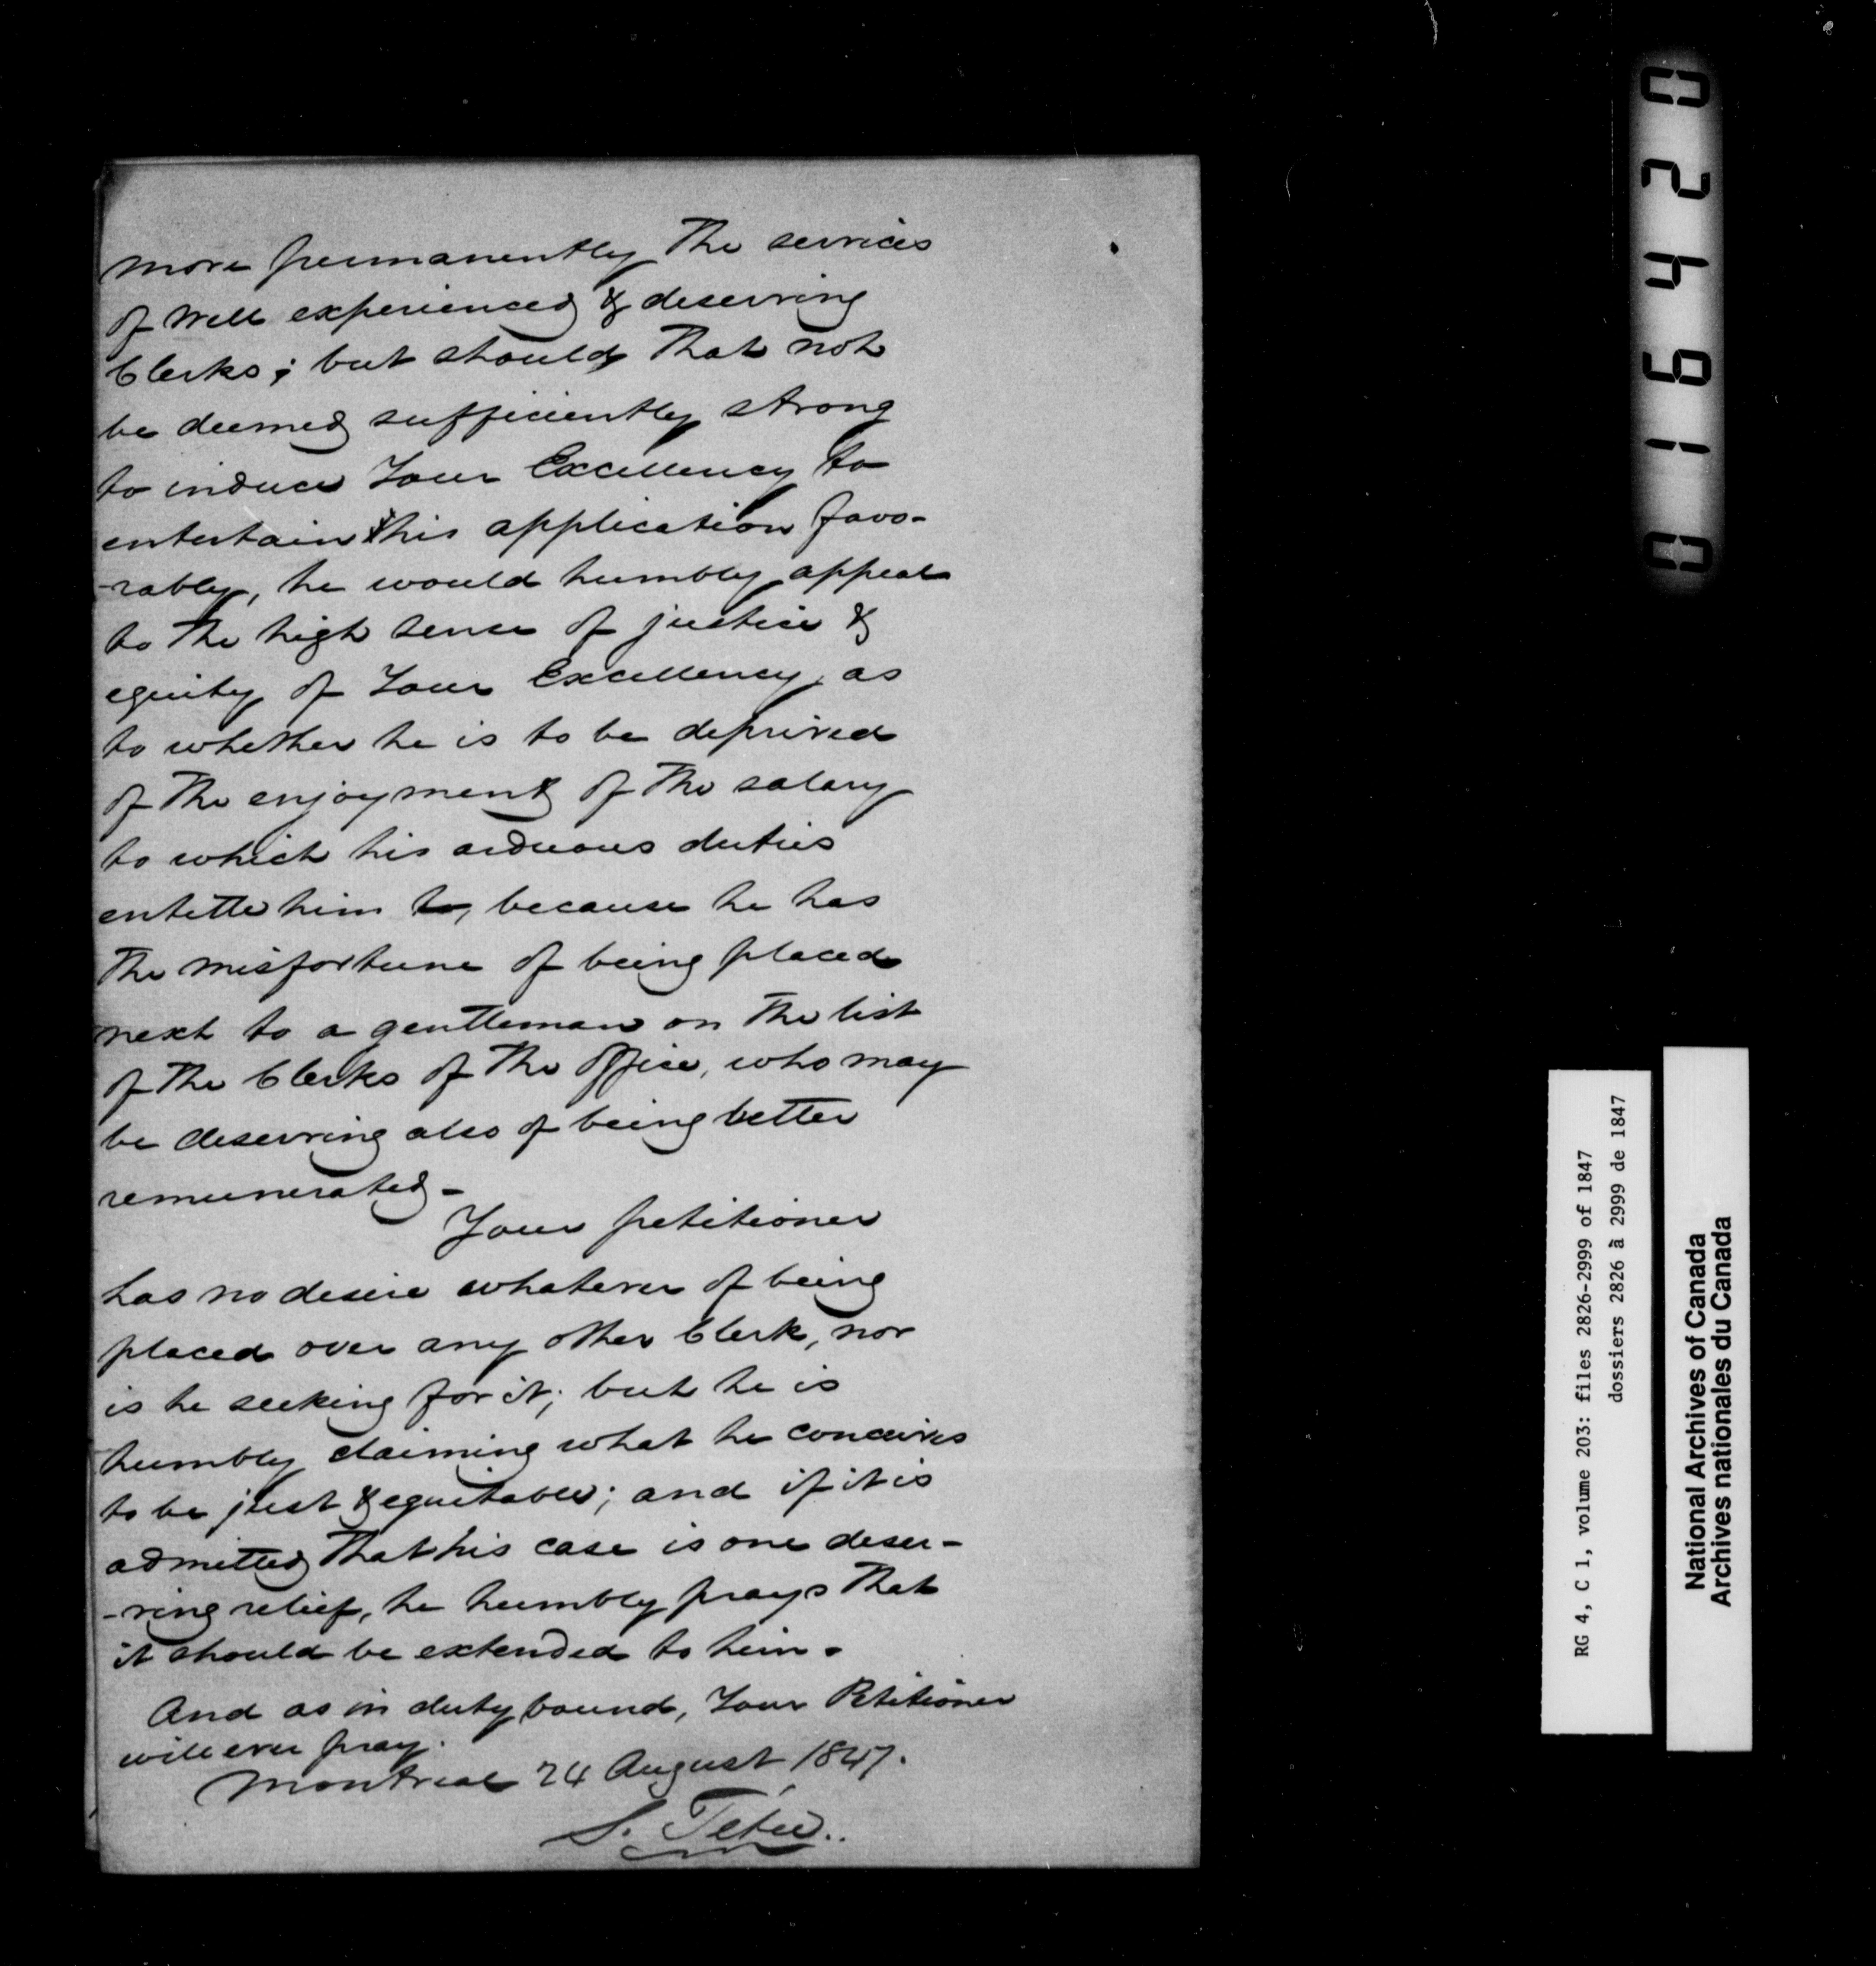 more permanently the services
of well experienced & deserving
Clerks; but should that not
be deemed sufficiently strong
to induce Your Excellency to
entertain this application favo-
-rably, he would humbly appeal
to the high sense of justice &
equity of Your Excellency, as
to whether he is to be deprived
of the enjoyment of the salary
to which his arduous duties
entitle him to, because he has
the misfortune of being placed
next to a gentleman on the list
of the Clerks of the Office, who may
be deserving also of being better
remunerated-
Your petitioner
has no desire whatever of being
placed over any other Clerk, nor
is he seeking for it; but he is
humbly claiming what he conceives
to be just & equitable; and if it is
admitted that his case is one deser-
-ving relief, he humbly prays that
it should be extended to him.
And as in duty bound, Your Petitioner
will ever pray.
Montreal 24 August 1847.
S. Tétu..
016420
RG 4, C 1, volume 203: files 2826-2999 of 1847
dossiers 2826 à 2999 de 1847
National Archives of Canada
Archives nationales du Canada